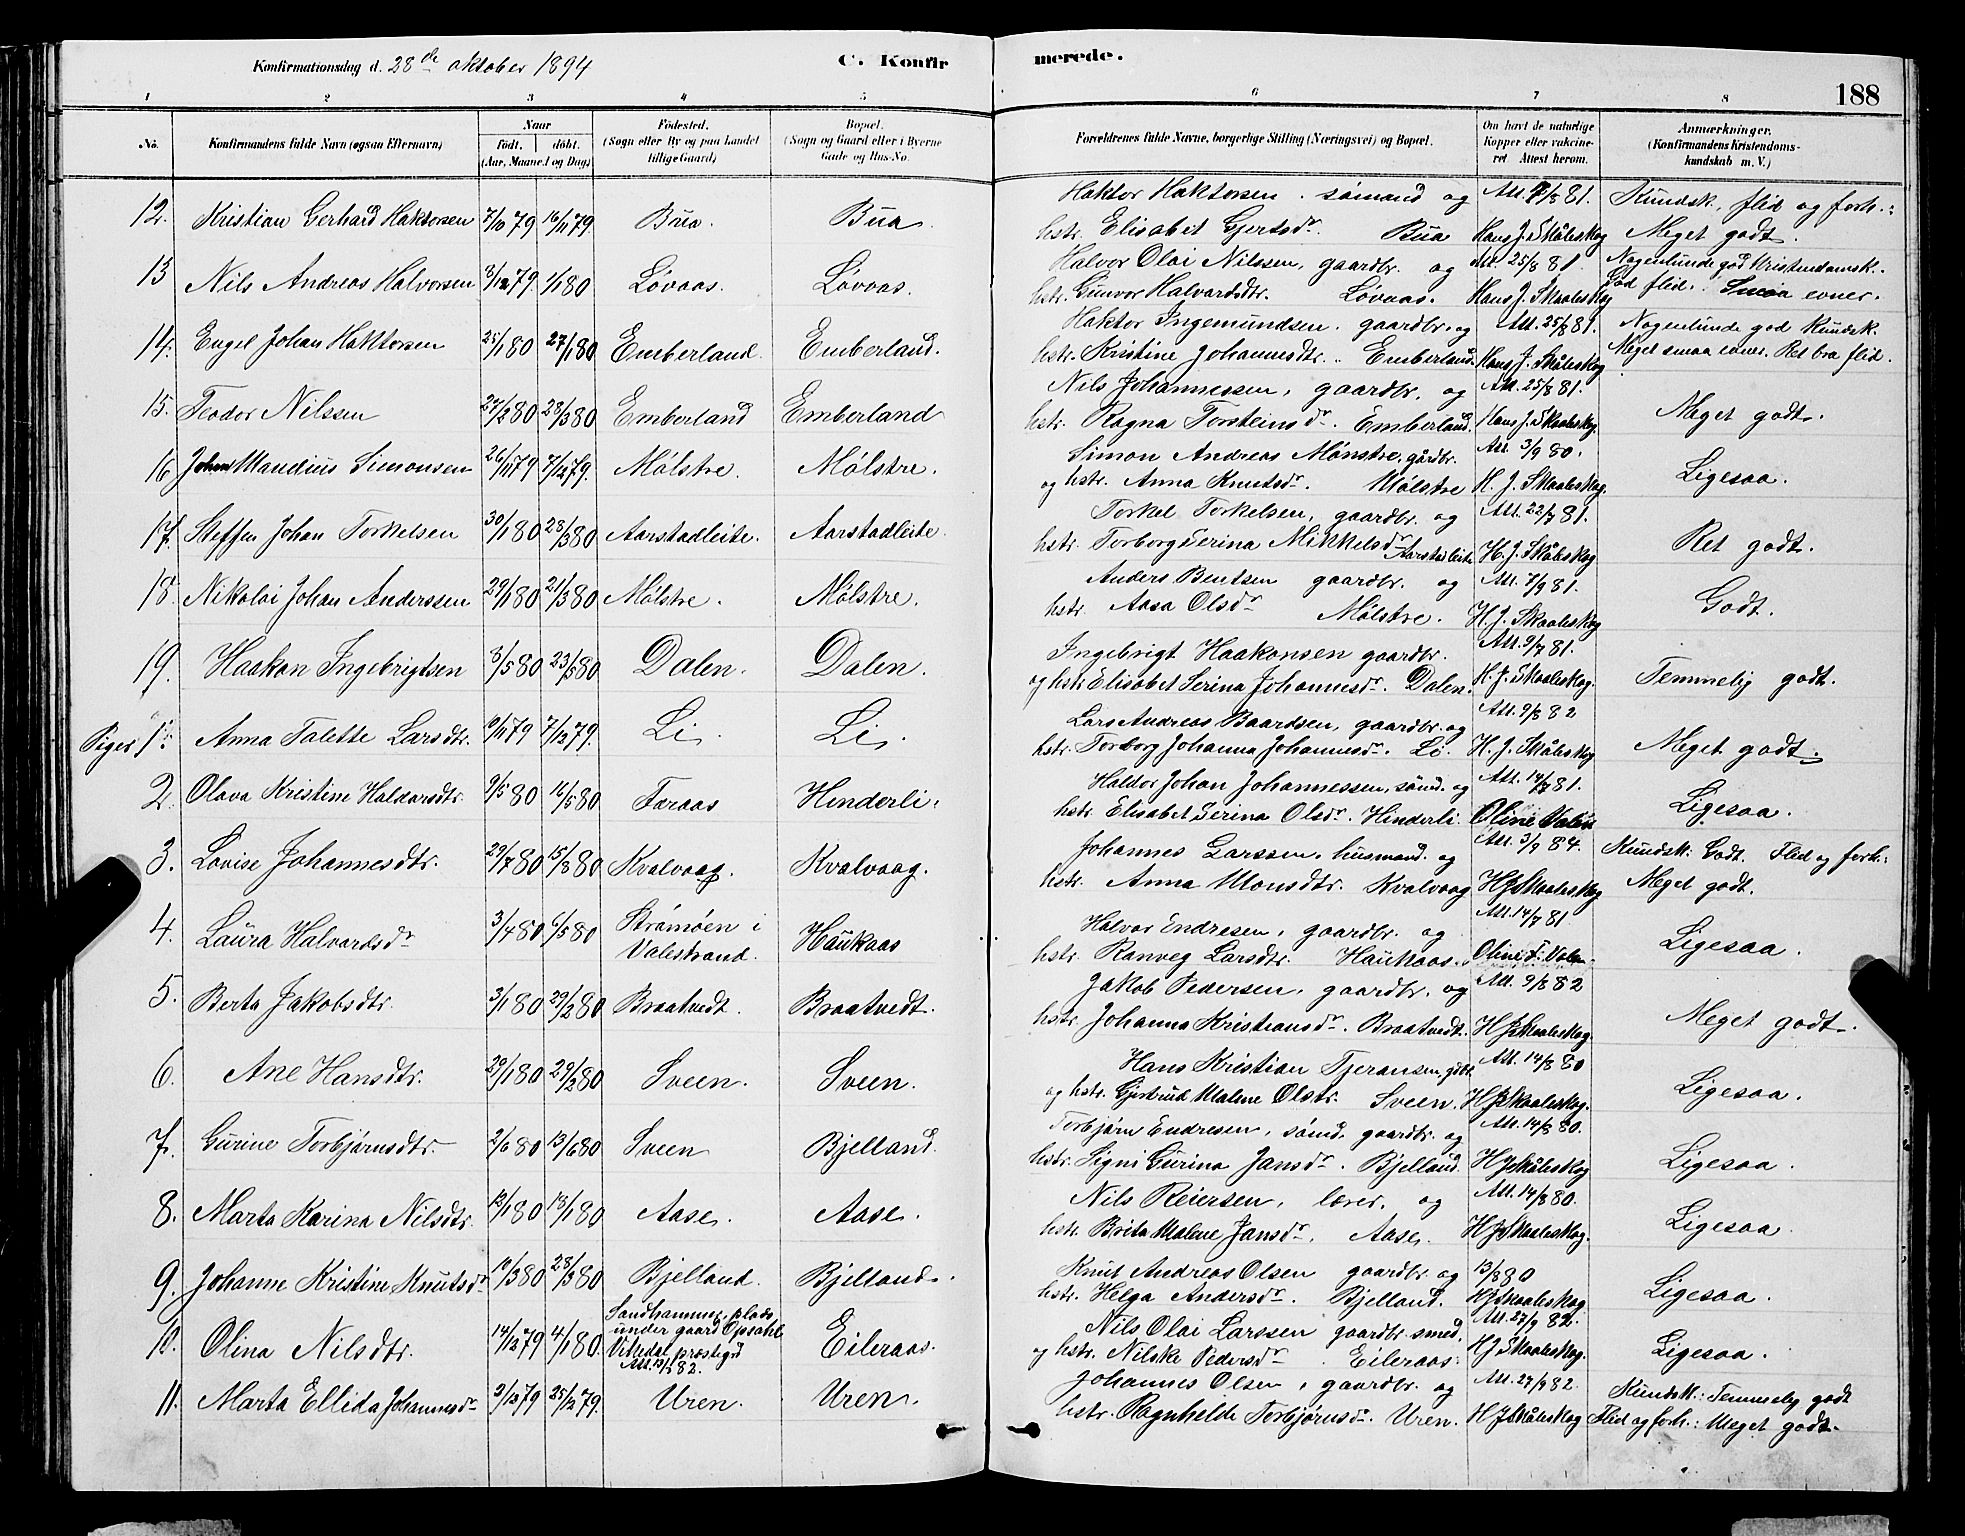 Konfirmationsdag d. 28de oktober 1894
C. Konfirmerede.
188
1 2 3 4 5 6 7 8
No.
Konfirmandens fulde Navn (ogsaa Efternavn)
Naar
født. døbt.
(Aar, Maaned og Dag)
Fødested.
(Sogn eller By og paa Landet
tillige Gaard)
Bopæl.
(Sogn og Gaard eller i Byerne
Gade og Hus-No.
Forældrenes fulde Navne, borgerlige Stilling (Næringsvei) og Bopæl.
Om havt de naturlige
Kopper eller vakcine-
ret. Attest herom.
Anmærkninger.
(Konfirmandens Kristendoms-
kundskab m. V.)
12. Kristian Gerhard Haktorsen 7/10 79 16/11 79 Bua. Bua.
Haktor Haktorsen. sømand og
hstr. Elisabet Gjertsdr. Bua
Hans J. Skåleskog
Kundsk., flid og forh.:
Meget godt.
13 Nils Andreas Halvorsen 8/12 79 1/1 80 Løvaas. Løvaas.
Halvor Olai Nilssen, gaardbr. og
hstr. Gunvor Halvardsdtr. Løvaas.
Att. 25/8 81.
Hans J. Skaaleskog
Nogenlunde god Kristendomsk.
God flid. Smaa evner.
14. Engel Johan Haktorsen 25/1 80 27/1 80 Emberland. Emberland.
Haktor Ingemundsen. gaardbr. og
hstr. Kristine Johannesdtr. Emberland.
Att. 25/8 81.
Hans J. Skåleskog
Nogenlunde god Kundsk.
Meget smaa evner. Ret bra flid.
15. Teodor Nilssen 27/2 80 28/3 80 Emberland Emberland
Nils Johannessen, gaardbr. og
hstr. Ragna Torsteinsdr. Emberland.
Att. 25/8 81.
Hans J. Skaaleskog.
Meget godt.
16 Johan Mandius Simonsen 26/11 79 7/12 79. Mølstre. Mølstre.
Simon Andreas Mønstre, gårdbr.
og hstr. Anna Knutsdr. Mølstre
Att. 3/9 80.
H. J. Skaaleskog.
Ligesaa.
17. Steffen Johan Torkelsen 30/1 80 28/3 80 Aarstadleite. Aarstadleite.
Torkel Torkelsen, gaardbr. og
hstr. Torborg Serina Mikkelsdr. Aarstadleite
H. J. Skåleskog
Ret godt.
18. Nikolai Johan Anderssen 29/1 80 21/3 80 Mølstre. Mølstre.
Anders Bentsen gaardbr. og
hstr. Aasa Olsdr Mølstre.
Att. 7/9 81.
H. J. Skaaleskog
Godt.
19. Haakon Ingebrigtsen 8/5 80 23/5 80 Dalen. Dalen.
Ingebrigt Haakonsen gaardbr.
og hstr. Elisabet Serina Johannesdr. Dalen.
H. J. Skaaleskog.
Temmelig godt.
Piger 1. Anna Talette Larsdtr. 9/11 79 7/12 79. Li. Li.
Lars Andreas Baardsen, gaardbr. og
hstr. Torborg Johanna Johannesdr. Li.
Att. 9/8 82
H. J. Skåleskog
Meget godt.
2. Olava Kristine Haldorsdtr. 9/5 80 16/5 80 Faraas Hinderli.
Haldor Johan Johannessen, sømd. og
hstr. Elisabet Serina Olsdr. Hinderli.
Oline Valen
Ligesaa.
3. Lovise Johannesdtr. 29/7 80 15/8 80 Kvalvaag. Kvalvaag.
Johannes Larssen. husmand. og
hstr. Anna Monsdtr. Kvalvaag
Att. 3/9 84.
H J Skaaleskog
Kundsk: Godt. Flid og forh.:
Meget godt.
4. Laura Halvardsdr 3/4 80 6/5 80 Strømøen i
Valestrand. Haukaas
Halvor Endresen, gaardbr. og
hstr. Ranveg Larsdtr. Haukaas.
Ligesaa.
5. Berta Jakobsdtr. 3/1 80 29/2 80 Braatvedt. Braatvedt.
Jakob Pedersen, gaardbr. og
hstr. Johanna Kristiansdr. Braatvedt.
Att. 9/8 82
H J Skaaleskog.
Meget godt.
6. Ane Hansdtr. 29/1 80 29/2 80 Sveen. Sveen.
Hans Kristian Tjeransen, gdbr.
og hstr. Gjertrud Malene Olsdtr. Sveen.
Att. 14/8 80
H J Skaaleskog.
Ligesaa.
7. Gurine Torbjørnsdtr. 2/6 80 13/6 80 Sveen Bjelland.
Torbjørn Endresen, sømd. gaardbr. og
hstr. Signi Gurina Jansdr. Bjelland.
Att. 14/8 80.
H J Skåleskog
Ligesaa.
8. Marta Karina Nilsdtr. 13/1 80 18/1 80 Aase. Aase.
Nils Reiersen, lærer. og
hstr. Brita Malene Jansdr. Aase.
Att. 14/8 80.
H J Skaaleskog.
Ligesaa.
9. Johanne Kristine Knutsdr 10/3 80 28/3 80 Bjelland. Bjelland.
Knut Andreas Olsen gaardbr. og
hstr. Helga Andersdr. Bjelland.
13/8 80
H J Skaaleskog.
Ligesaa.
10. Olina Nilsdtr. 14/12 79 4/1 80. Sandhammer, plads
under gaard Opsahl
Vikedal prestegd Eileraas.
Nils Olai Larssen gaardbr. smed.
og hstr. Nilske Pedersdr. Eileraas.
Att. 27/9 82.
H J Skaaleskog.
Ligesaa.
11. Marta Ellida Johannesdr 2/12 79 25/12 79. Uren. Uren.
Johannes Olsen, gaardbr. og
hstr. Ragnhilde Torbjørnsdr. Uren.
Att. 27/9 82.
H J Skåleskog
Kundsk.: Temmelig godt
Flid og forh.: Meget godt.